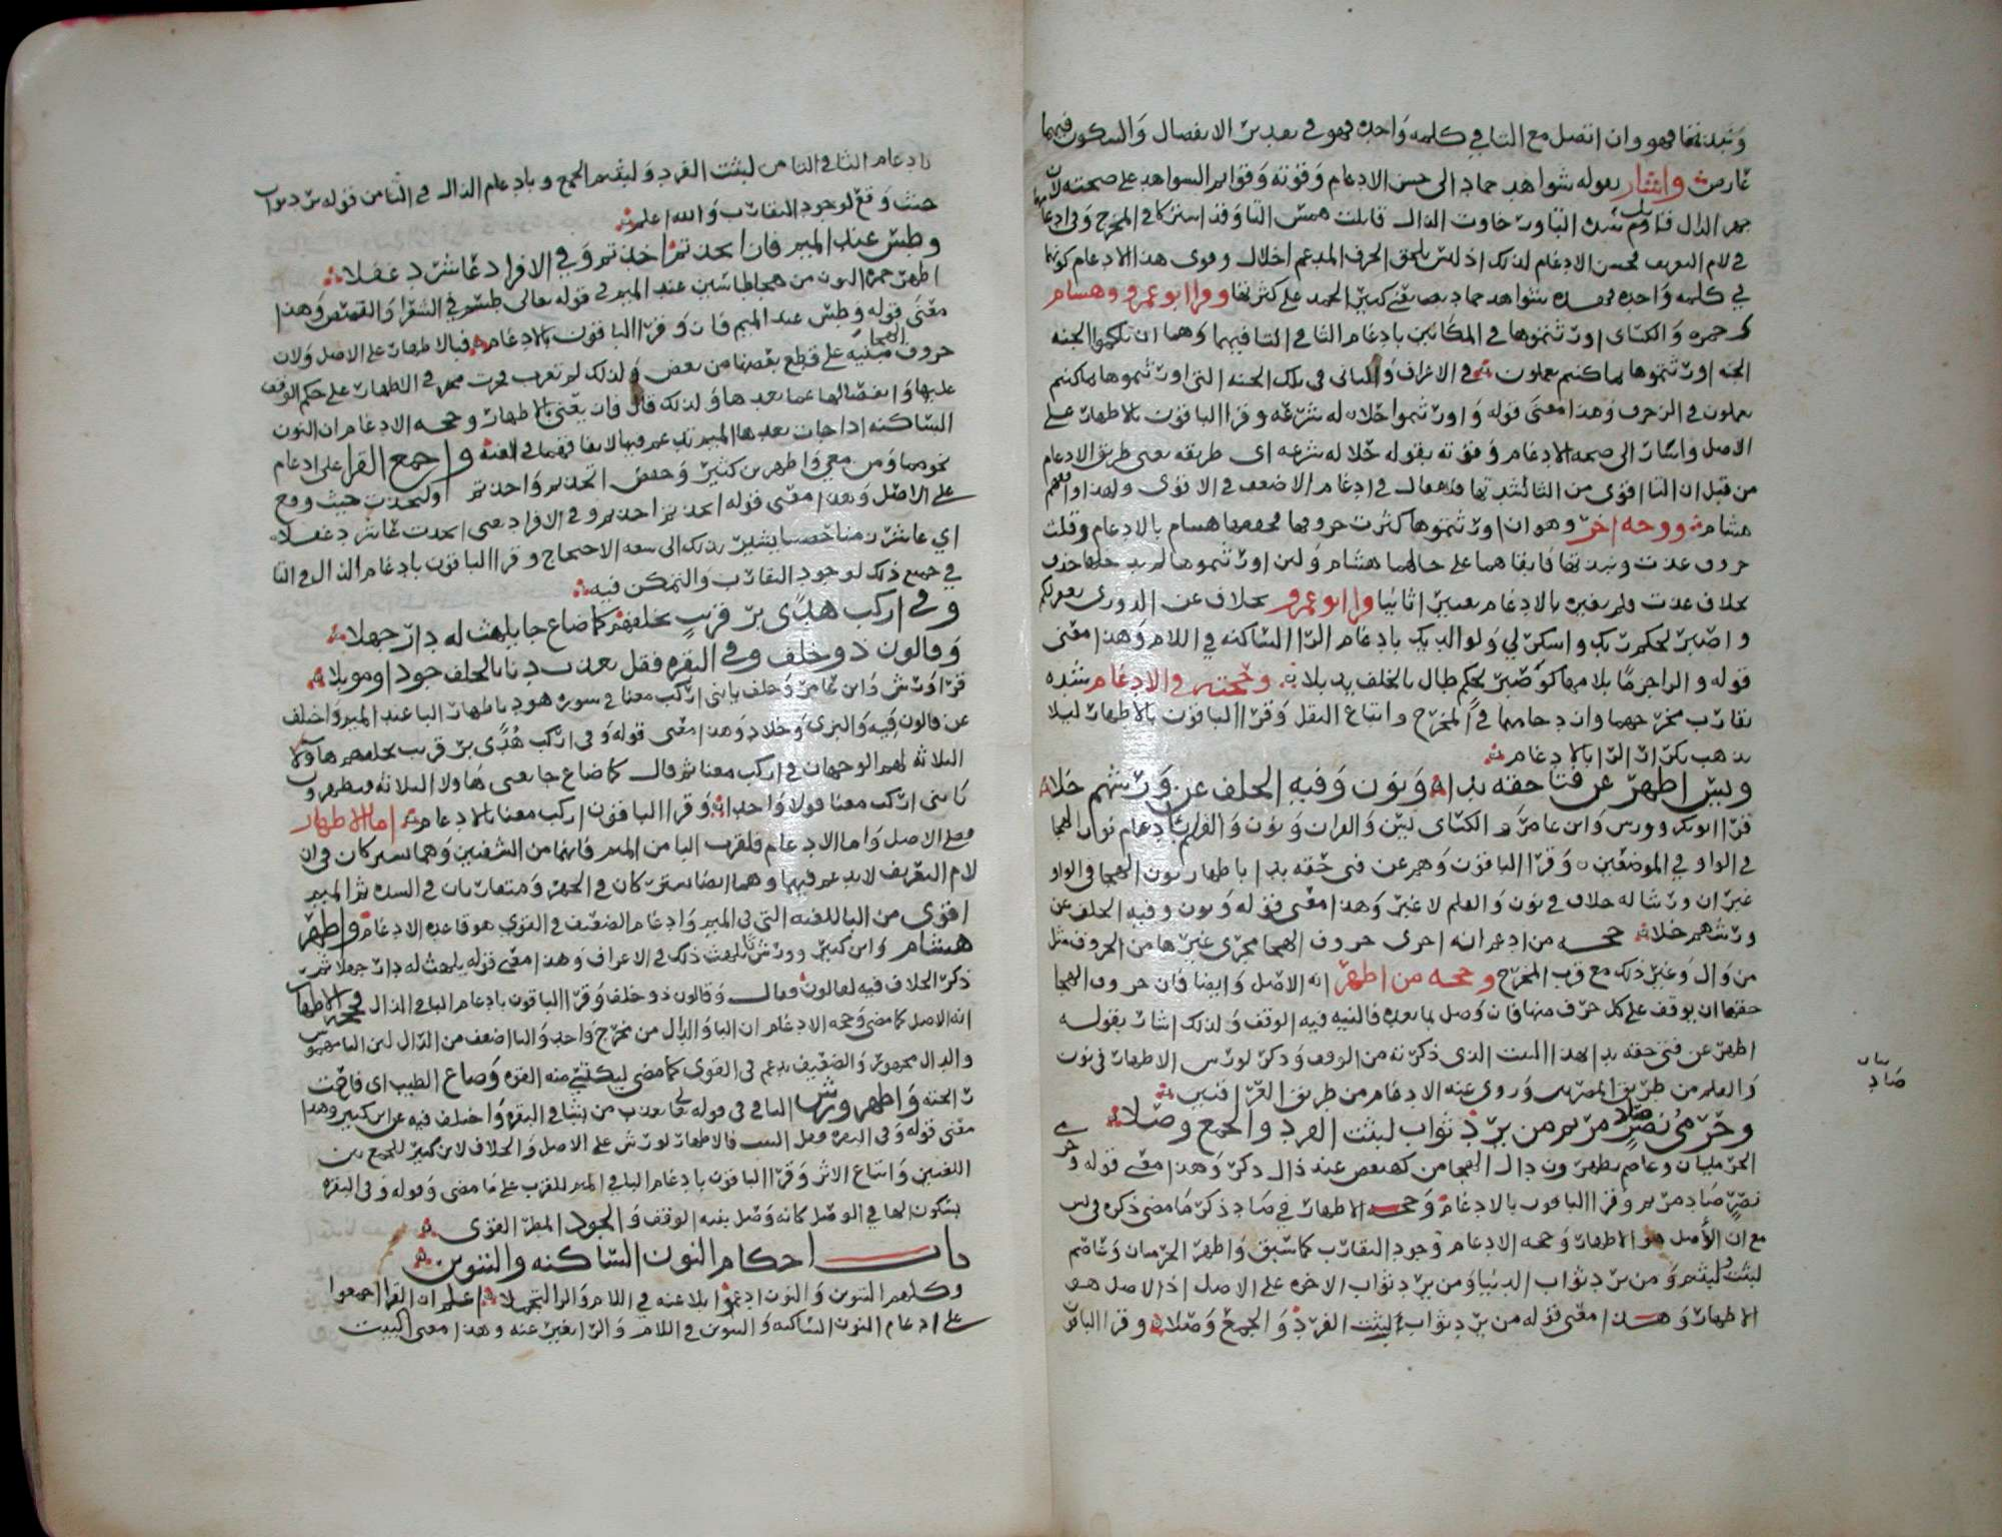 ونبذتها فهو وان اتصل مع التا في كلمه واحده فهو في تقدير الانفصال والسكون فيهما
عارض واشار بقوله شواهد حماد الى حسن الادغام وقوته وتواتر الشواهد على صحته لان
جهر الذال قابلت همس التا وقد اشتركا في المخرج وفي ادغامها
في لام التعريف فحسن الادغام لذلك اذ ليس يلحق الحرف المدغم اخلال وقوى هذا الادغام كونها
في كلمه واحده فهذه شواهد حماد يعني كثير الحمد على كثرتها وقرا ابو عمرو وهشام
وحمزه والكسائي اورثتموها في المكانين بادغام الثا في التا فيهما وهما ان تلكم الجنه
الجنه اورثتموها بما كنتم تعملون في الاعراف والثاني في تلك الجنه التي اورثتموها بما كنتم
تعملون في الزخرف وهذا معنى قوله واورثتموا حلا له شرعه وقرا الباقون بالاظهار على
الاصل واشار الى صحه الادغام وقوته بقوله حلا له شرعه اي طريقه يعني طريق الادغام
من قبل ان التا اقوى من الثا لشدتها فدعم الاضعف في الاقوى ولهذا وافقهم
هشام ووجه اخر وهو ان اورثتموها كثرت حروفها فخففها هشام بالادغام وقلت
حروف عدت ونبذتها فابقاهما على حالهما هشام ولان اورثتموها لم يدخلها حذف
بخلاف عدت ولم يغيره بالادغام تغييرا ثانيا وقرا ابو عمرو بخلاف عن الدوري يغفر لكم
واصبر لحكم ربك واشكر لي ولوالديك بادغام الرا الساكنه في اللام وهذا معنى
قوله والرا جزما بلامها كواصبر لحكم طال بالخلف يذبلا وحجته في الادغام شده
تقارب مخرجهما وازدحامهما في المخرج واتباع النقل وقرا الباقون بالاظهار ليلا
يذهب تكرار الرا بالادغام
ويس اظهر عن فتى حقه بدا ونون وفيه الخلف عن ورشهم خلا
قرا ابو بكر وورش وابن عامر والكسائي يس والقران ونون والقلم بادغام نون الهجا
في الواو في الموضعين وقرا الباقون وهم عن فتى حقه بدا باظهار نون الهجا في الواو
غير ان ورشا له خلاف في نون والقلم لا غير وهذا معنى قوله ونون وفيه الخلف عن
ورشهم خلا حجه من ادغم انه اجرى حروف الهجا مجرى غيرها من الحروف مثل
من وال وغير ذلك مع قرب المخرج وحجه من اظهر انه الاصل وايضا فان حروف الهجا
حقها ان يوقف على كل حرف منها فان وصل بما بعده فالنيه فيه الوقف ولذلك اشار بقوله
اظهر عن فتى حقه بدا بهذا البيت الذي ذكرته من الوقف وذكر لورش الاظهار في نون
والقلم من طريق المصريين وروى عنه الادغام من طريق العراقيين
وحرمي نصر صاد مريم من يرد ثواب لبثت الفرد والجمع وصلا
الحرميان وعاصم يظهرون دال الهجا من كهيعص عند ذال ذكر وهذا معنى قوله وحرمي
نصر صاد مريم وقرا الباقون بالادغام وحجه الاظهار في صاد ذكر ما مضى ذكره في يس
مع ان الاصل هو الاظهار وحجه الادغام وجود التقارب كما سبق واظهر الحرميان وعاصم
لبثت ولبثتم ومن يرد ثواب الدنيا ومن يرد ثواب الاخره على الاصل اذ الاصل هو
الاظهار وهذا معنى قوله من يرد ثواب لبثت الفرد والجمع وصلا وقرا الباقون
صاد
بادغام الثا في التا من لبثت الفرد ولبثتم الجمع وبادغام الدال في الثا من قوله يرد ثواب
حيث وقع لوجود التقارب والله اعلم
وطس عند الميم فاز اتخذتم اخذتم وفي الافراد عاشر دغفلا
اظهر حمزه النون من هجا طاسين عند الميم في قوله تعالى طسم في الشعرا والقصص وهذا
معنى قوله وطس عند الميم فاز وقرا الباقون بالادغام فبالاظهار على الاصل ولان
حروف الهجا مبنيه على قطع بعضها من بعض ولذلك لم تعرب فجرت مجرى الاظهار على حكم الوقف
عليها وانفصالها عما بعدها ولذلك قال فاز يعني بالاظهار وحجه الادغام ان النون
الساكنه اذا جات بعدها الميم تدغم فيها لاتفاقهما في الغنه واجمع القرا على ادغام
نحو مما ومن معي واظهر بن كثير وحفص اتخذتم واخذتم ولتخذت حيث وقع
على الاصل وهذا معنى قوله اتخذتم اخذتم وفي الافراد يعني اتخذت عاشر دغفلا
اي عاشر زمنا خصبا يشير بذلك الى سعه الاحتجاج وقرا الباقون بادغام الذال في التا
في جميع ذلك لوجود التقارب والتمكن فيه
وفي اركب هدى بر قريب بخلفهم كما ضاع جا يلهث له دار جهلا
وقالون ذو خلف وفي البقره فقل يعذب دنا بالخلف جودا وموبلا
قرا ورش وابن عامر وخلف يا بني اركب معنا في سوره هود باظهار البا عند الميم واختلف
عن قالون فيه والبزي وخلاد وهذا معنى قوله وفي اركب هدى بر قريب بخلفهم هاولا
الثلاثه لهم الوجهان في اركب معنا ثم قال كما ضاع جا يعني هاولا الثلاثه يظهرون
يا بني اركب معنا قولا واحدا وقرا الباقون اركب معنا بالادغام اما الاظهار
فعلى الاصل واما الادغام فلقرب البا من الميم فانهما من الشفتين وهما يشتركان في ان
لام التعريف لا يدغم فيهما وهما ايضا يشتركان في الجهر ومتقاربان في الشده ثم الميم
اقوى من البا للغنه التي في الميم وادغام الضعيف في القوي هو قاعده الادغام واظهر
هشام وابن كثير وورش ثا يلهث ذلك في الاعراف وهذا معنى قوله يلهث له دار جهلا ثم
ذكر الخلاف فيه لقالون فقال وقالون ذو خلف وقرا الباقون بادغام الثا في الذال فحجه الاظهار
انه الاصل كما مضى وحجه الادغام ان الثا والذال من مخرج واحد والثا اضعف من الذال لان الثا مهموس
والذال مجهور والضعيف يدغم في القوي كما مضى ليكتسي منه القوه وضاع الطيب اي فاحت
رائحته واظهر ورش البا في قوله تعالى يعذب من يشا في البقره واختلف فيه عن ابن كثير وهذا
معنى قوله وفي البقره فقل البيت فالاظهار لورش على الاصل والخلاف لابن كثير للجمع بين
اللغتين واتباع الاثر وقرا الباقون بادغام البا في الميم للقرب على ما مضى وقوله وفي البقره
بسكون الها في الوصل كانه وصل بنيه الوقف والجود المطر القوي
باب احكام النون الساكنه والتنوين
وكلهم التنوين والنون ادغموا بلا غنه في اللام والرا ليجملا اعلم ان القرا اجمعوا
على ادغام النون الساكنه والتنوين في اللام والرا بغير غنه وهذا معنى البيت